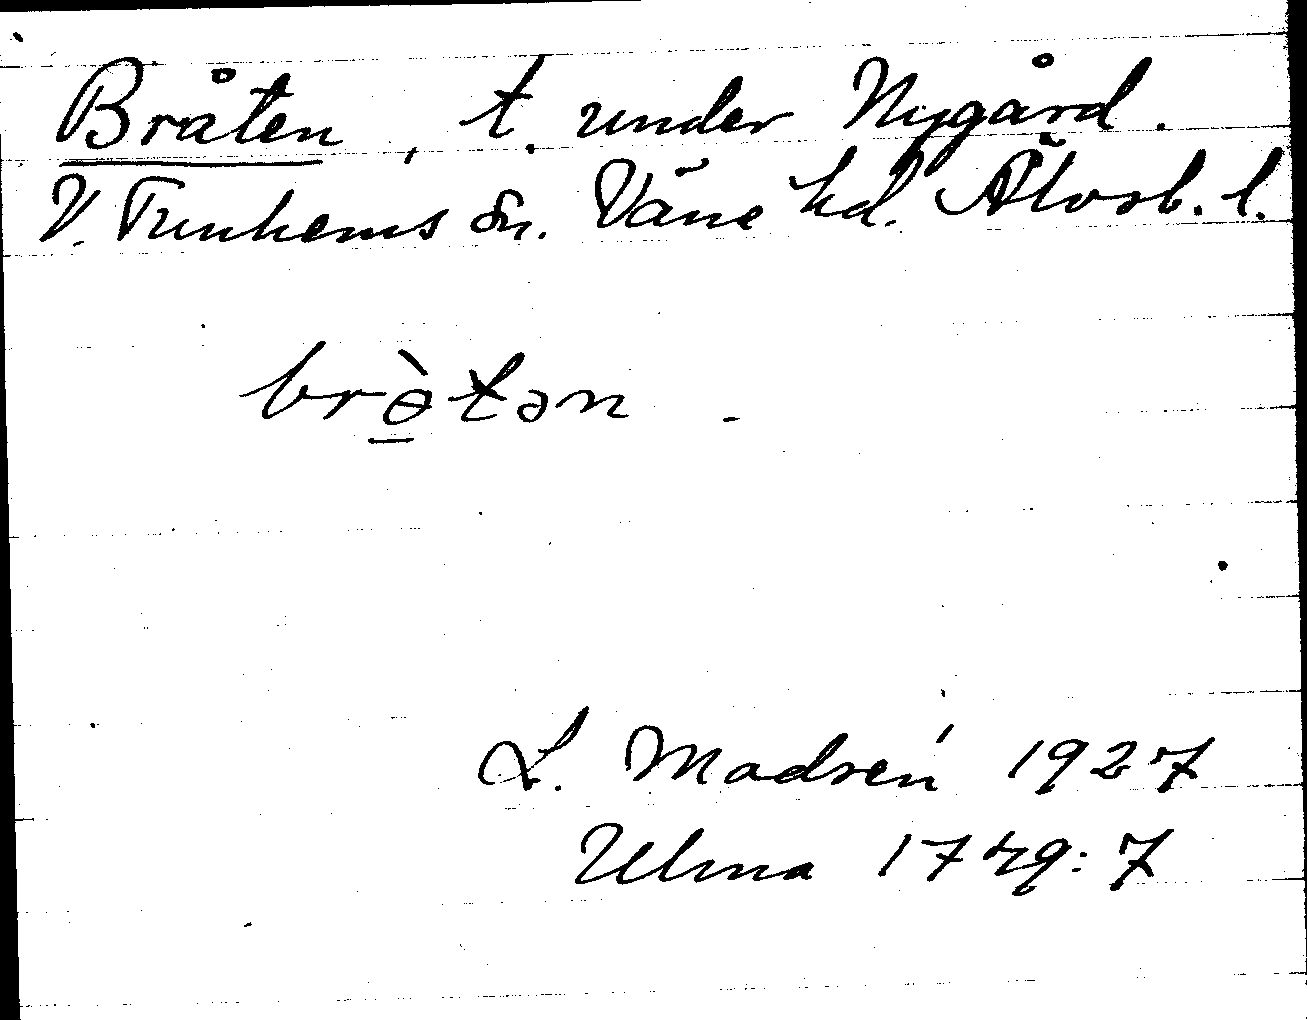 Bråten, t. under Nygård.
V. Tunhems sn. Väne hd. Älvsb. l.
brɵ̯̀tən.
L. Modrén 1927
Ulma 1749:7